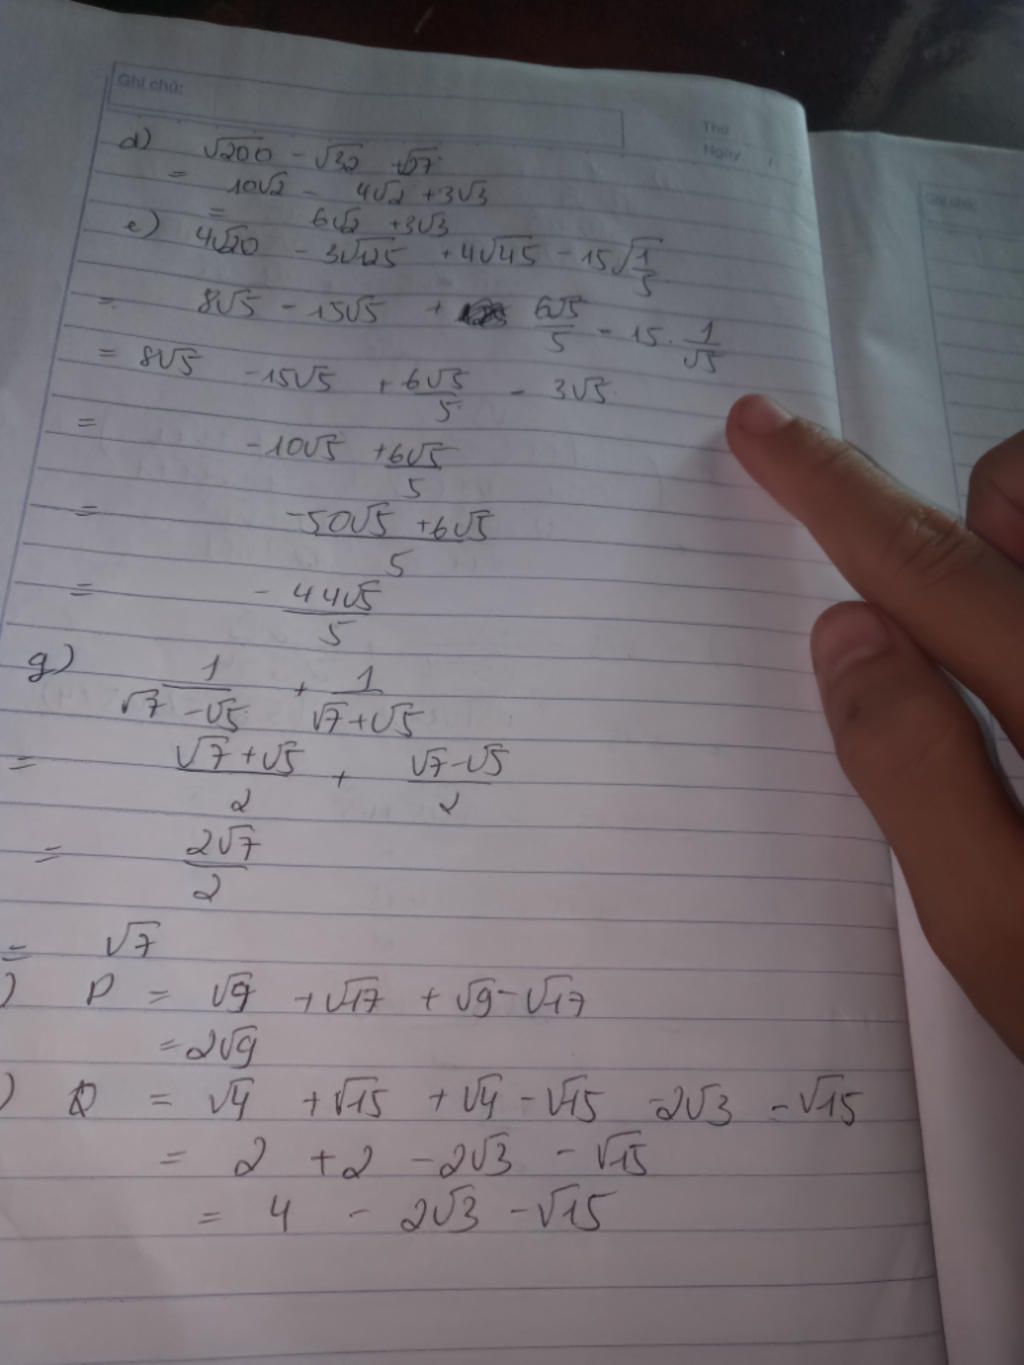 Ghi chú:
Thứ
Ngày /
Ghi chú:
d) √200 - √32 + √27
= 10√2 - 4√2 + 3√3
= 6√2 + 3√3
e) 4√20 - 3√125 + 4√45 - 15√(1/5)
= 8√5 - 15√5 + 6√5/5 - 15 . 1/√5
= 8√5 - 15√5 + 6√5/5 - 3√5
= -10√5 + 6√5/5
= (-50√5 + 6√5)/5
= - 44√5/5
g) 1/(√7 - √5) + 1/(√7 + √5)
= (√7 + √5)/2 + (√7 - √5)/2
= 2√7/2
= √7
) P = √9 + √17 + √9 - √17
= 2√9
) Q = √4 + √15 + √4 - √15 - 2√3 - √15
= 2 + 2 - 2√3 - √15
= 4 - 2√3 - √15